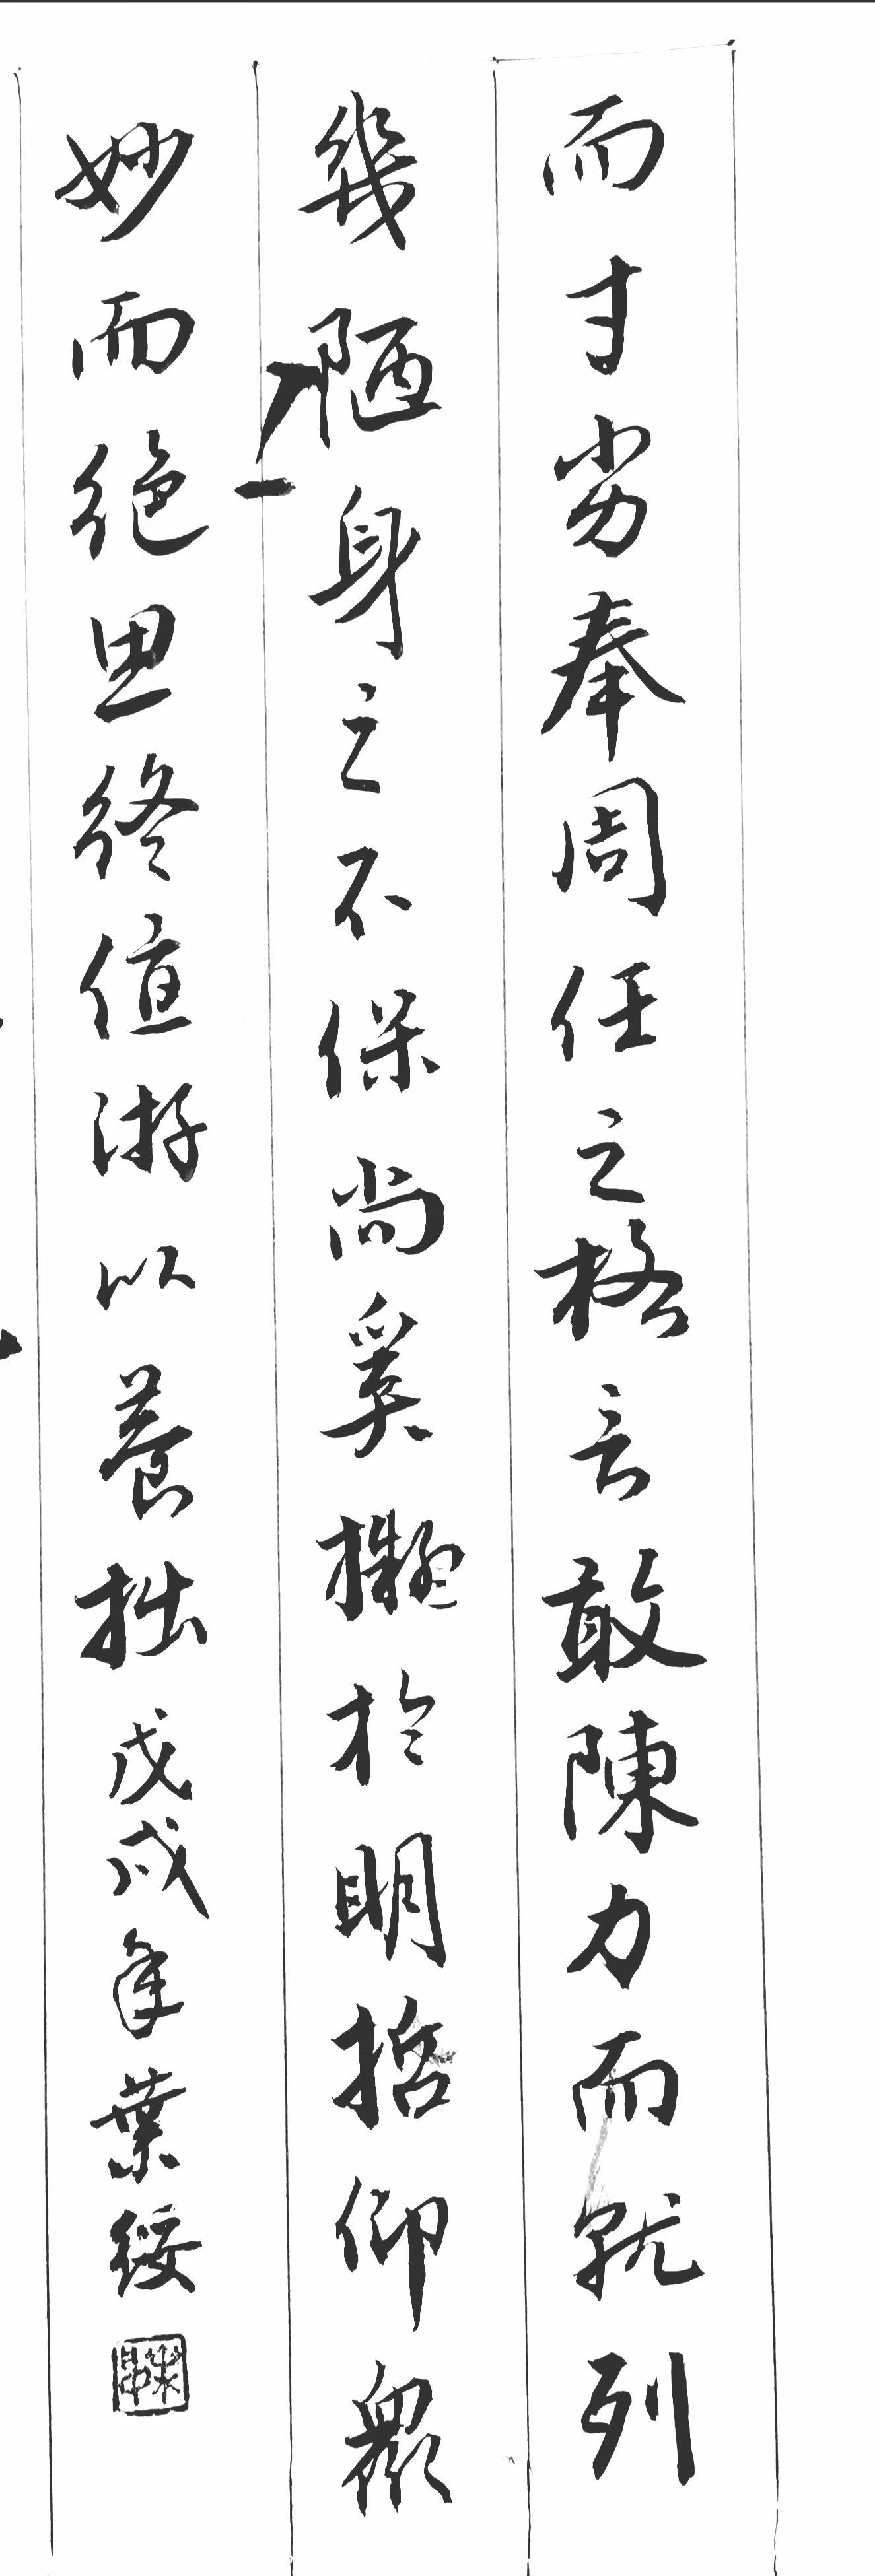 而才劣奉周任之格言敢陳力而就列
幾陋身之不保尚奚擬於明哲仰衆
妙而絶思終優游以養拙戊戌年葉綏